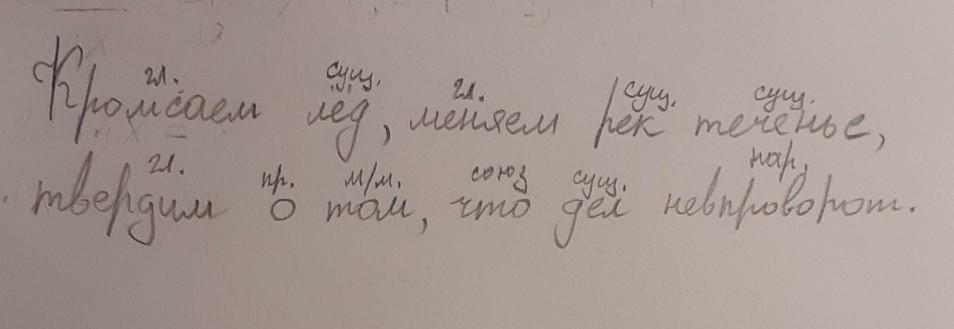 гл. сущ. гл. сущ. сущ.
Кромсаем лёд, меняем рек теченье,
гл. пр. м/м. союз сущ. нар.
твердим о том, что дел невпроворот.